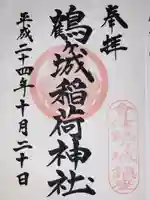 奉拝
鶴ヶ城稲荷神社
平成二十四年十月二十日